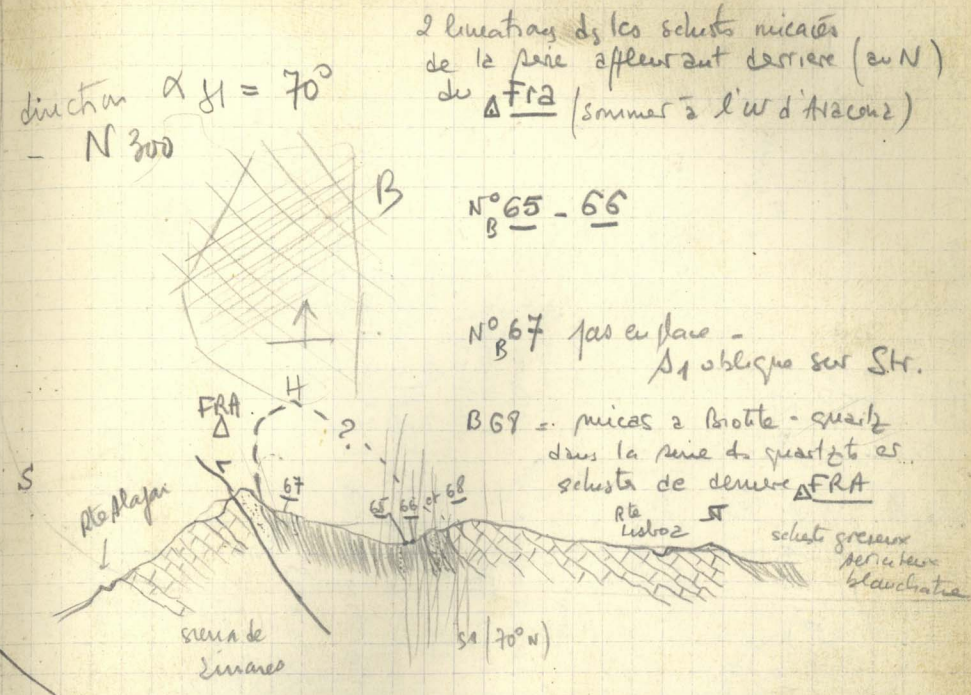 2 lineations ds les schistes micacés
de la série affleurant derriere (au N)
du Fra (sommet à l'W d'Aracena)
direction α S1 = 70°
- N 300
B
N° B 65 - 66
N° B 67 pas en place -
S1 oblique sur Str.
B 68 = micas a Biotite - quartz
dans la serie de quartzite et
schistes de derriere FRA
FRA
H
?
S
Rte Alajar
67
65 66 et 68
Rte
Lisboa
schistes greseux
sericiteux
blanchatre
sierra de
Linares
S1 (70° N)